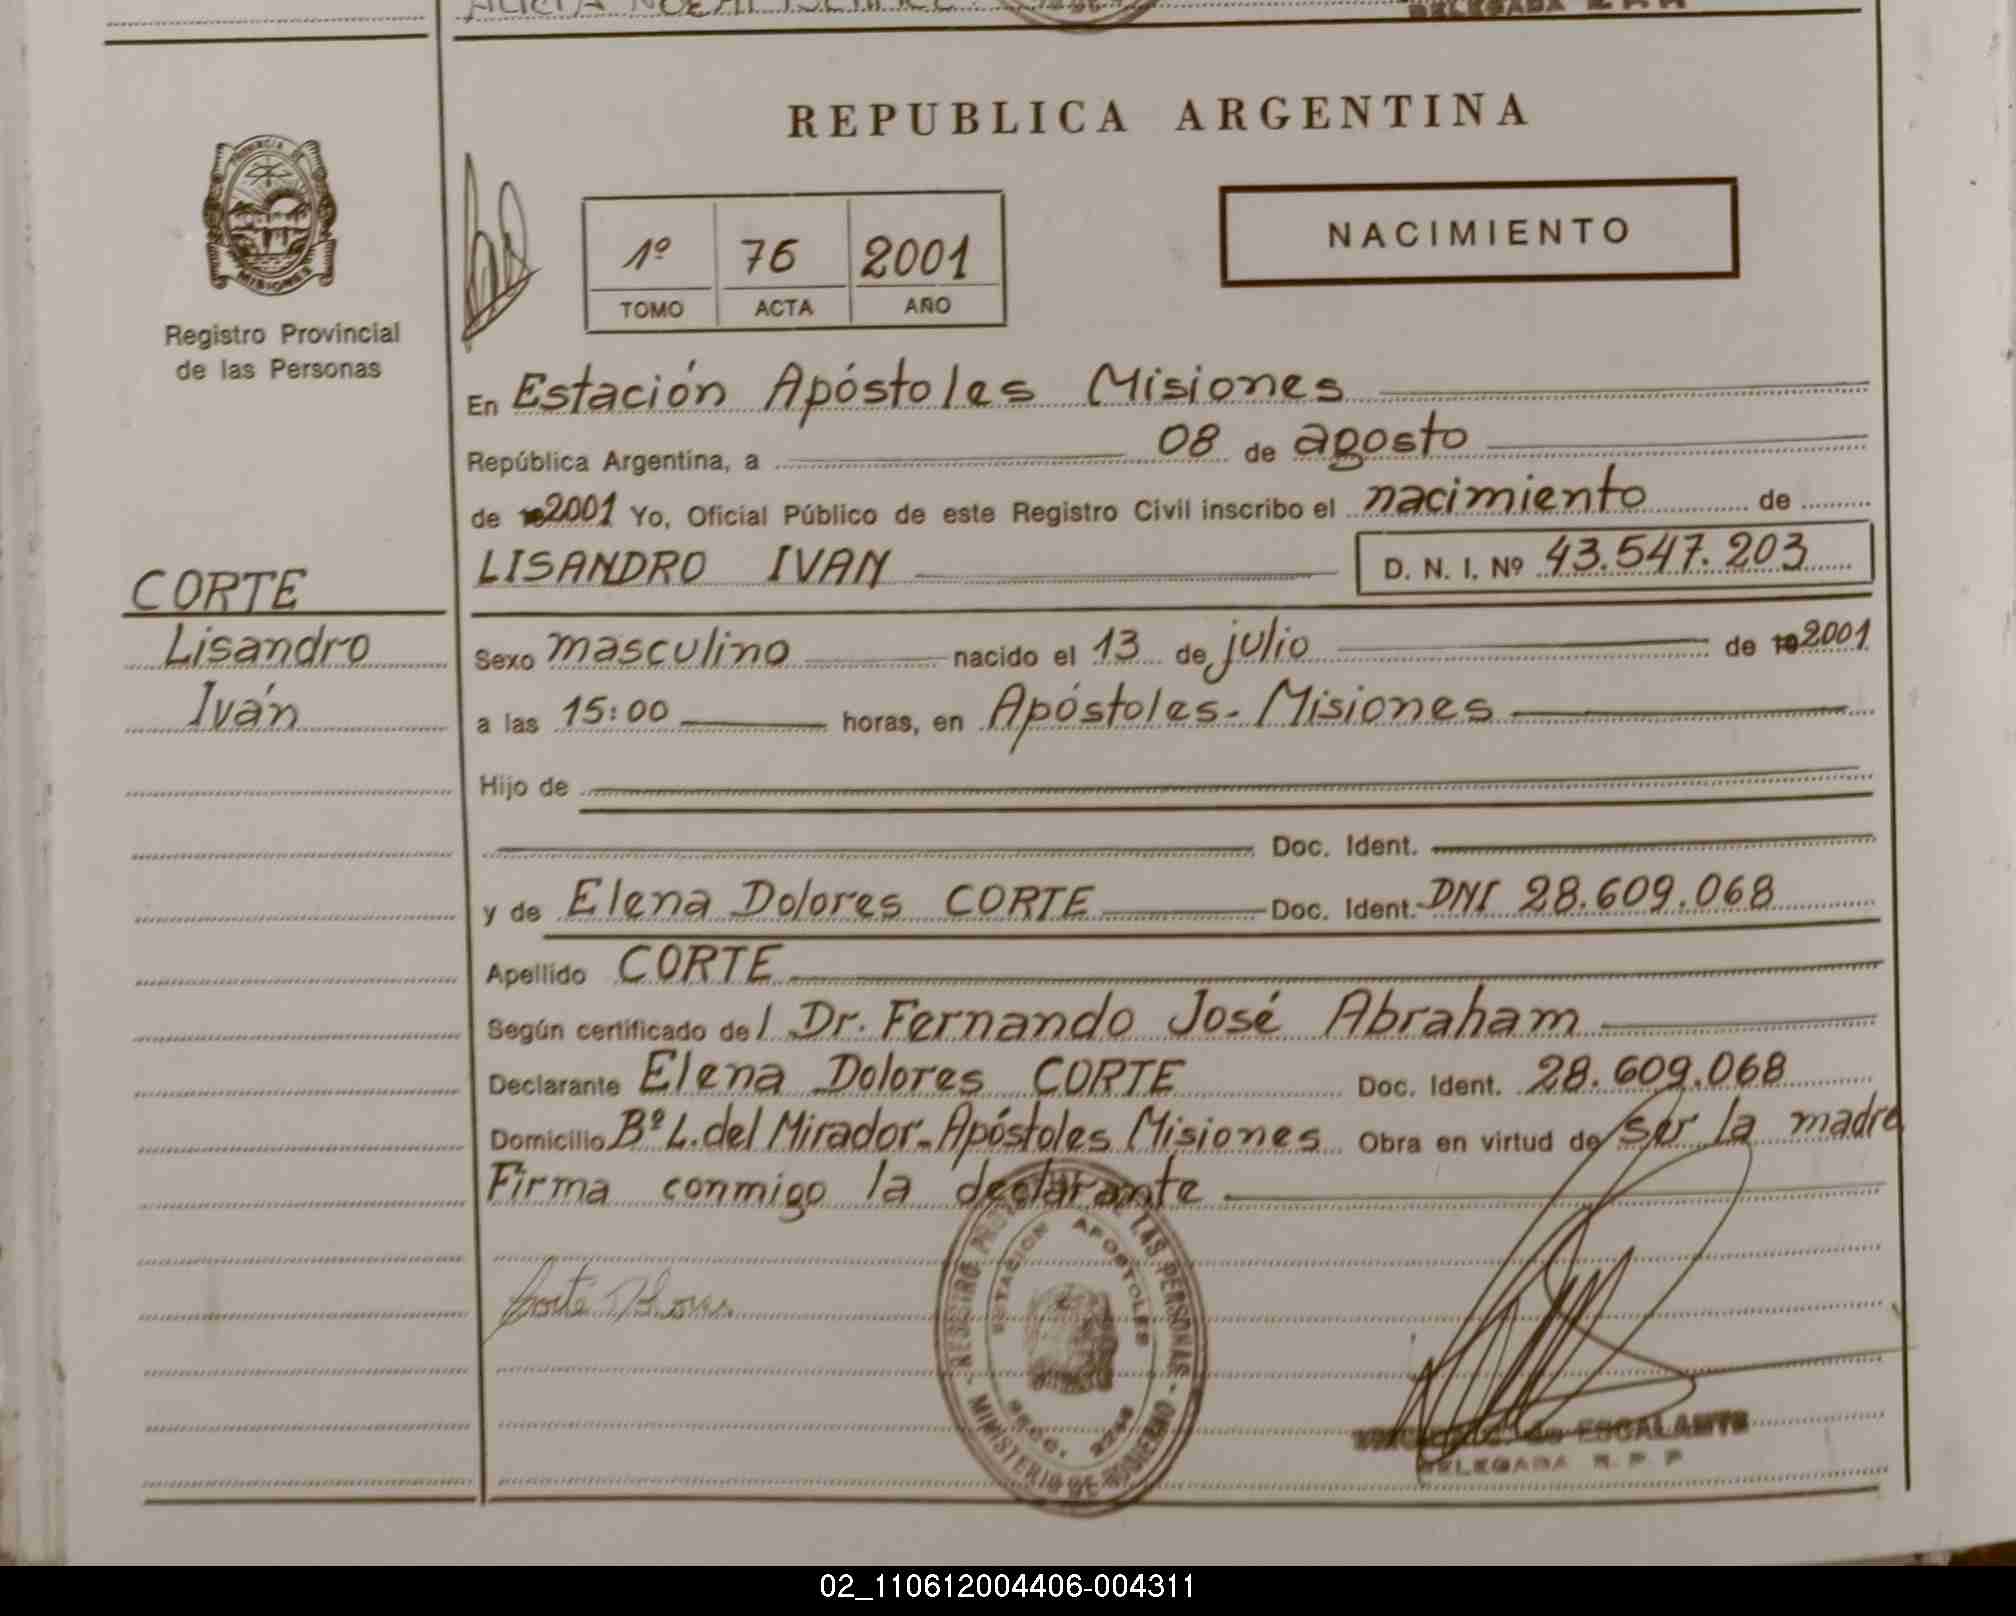 REPUBLICA ARGENTINA
PROVINCIA DE
MISIONES
Registro Provincial
de las Personas
NACIMIENTO
1º 76 2001
TOMO ACTA AÑO
En Estación Apóstoles Misiones
República Argentina, a 08 de agosto
de 2001 Yo, Oficial Público de este Registro Civil inscribo el nacimiento de
LISANDRO IVAN D. N. I. Nº 43.547.203
CORTE
Lisandro
Iván
Sexo masculino nacido el 13 de julio de 19 2001
a las 15:00 horas, en Apóstoles - Misiones
Hijo de
Doc. Ident.
y de Elena Dolores CORTE Doc. Ident. DNI 28.609.068
Apellido CORTE
Según certificado del Dr. Fernando José Abraham
Declarante Elena Dolores CORTE Doc. Ident. 28.609.068
Domicilio Bº L. del Mirador - Apóstoles Misiones Obra en virtud de ser la madre
Firma conmigo la declarante
Corte Dolores
REGISTRO DE LAS PERSONAS
ESTACION APOSTOLES
MINISTERIO DE GOBIERNO
de ESCALANTE
DELEGADA R. P. P.
02_110612004406-004311